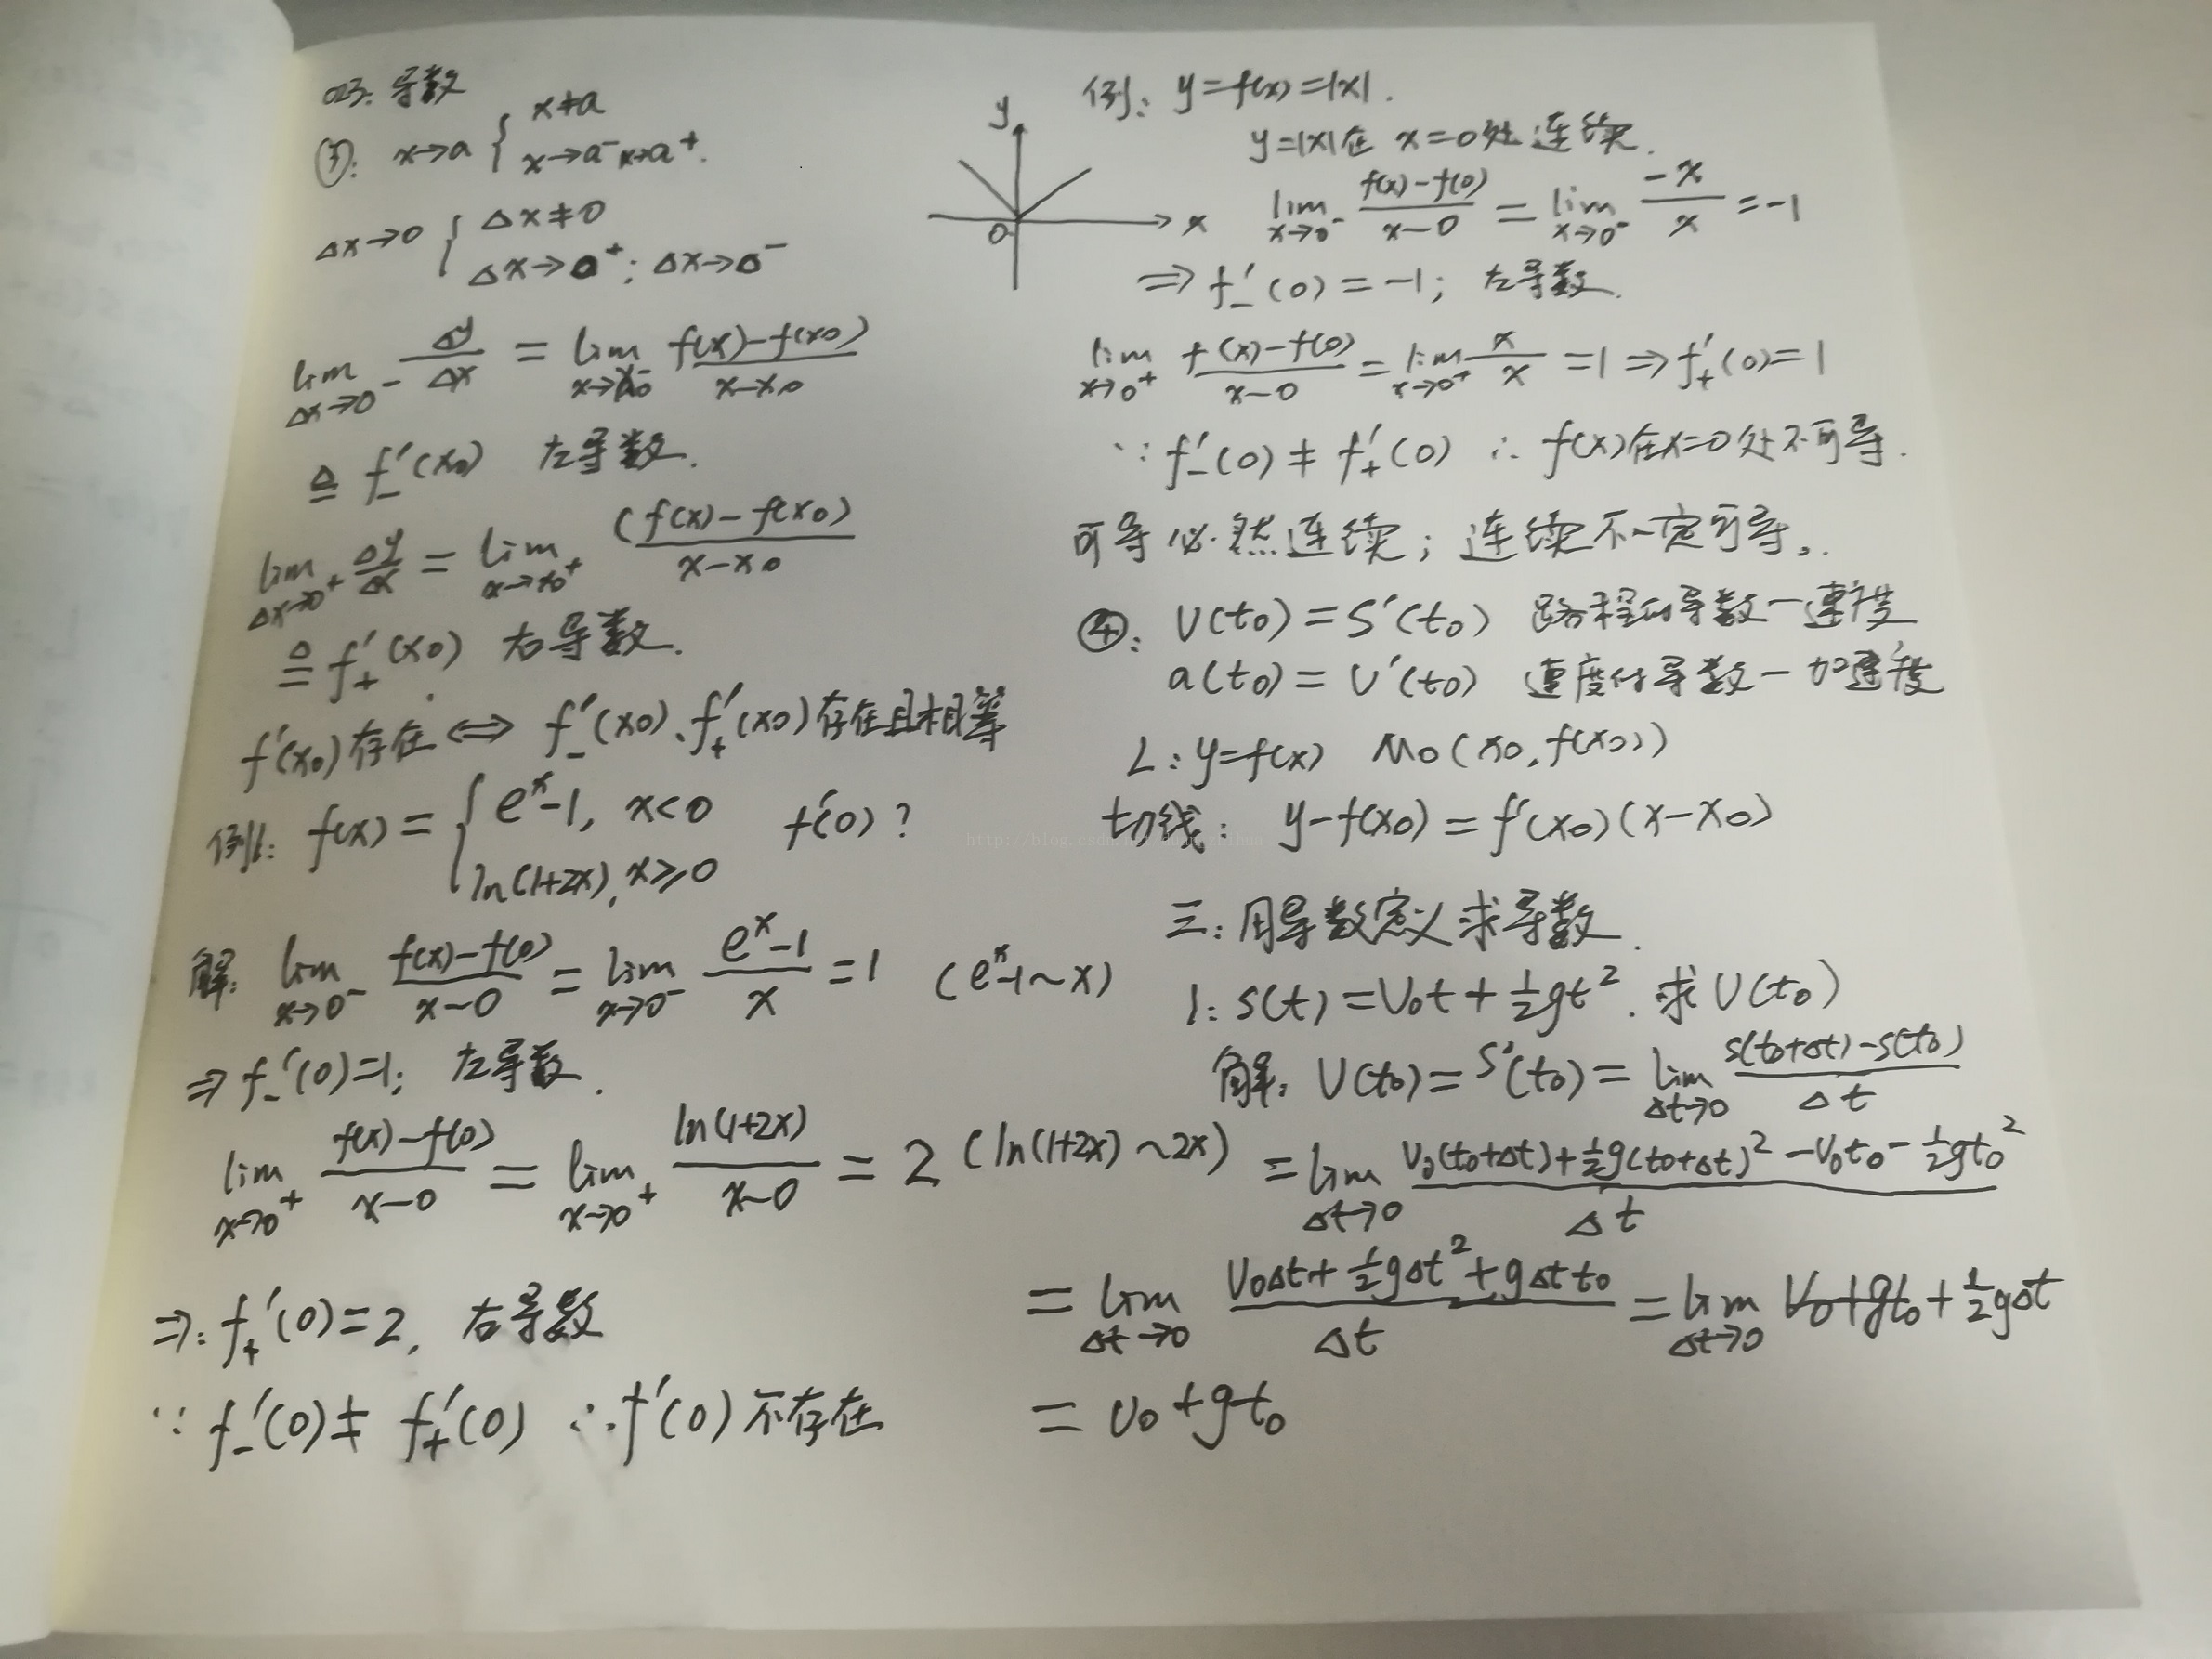 023. 导数
③: x→a { x≠a
x→a⁻ x→a⁺.
Δx→0 { Δx≠0
Δx→0⁺; Δx→0⁻
lim Δx→0⁻ Δy/Δx = lim x→x₀⁻ f(x)-f(x₀)/x-x₀
≜ f₋′(x₀) 左导数.
lim Δx→0⁺ Δy/Δx = lim x→x₀⁺ (f(x)-f(x₀)/x-x₀
≜ f₊′(x₀) 右导数.
f′(x₀)存在 ⇔ f₋′(x₀)、f₊′(x₀)存在且相等
例1: f(x) = { eˣ-1, x<0 f′(0)?
ln(1+2x), x≥0
解: lim x→0⁻ f(x)-f(0)/x-0 = lim x→0⁻ eˣ-1/x = 1 (eˣ-1~x)
⇒ f₋′(0)=1; 左导数.
lim x→0⁺ f(x)-f(0)/x-0 = lim x→0⁺ ln(1+2x)/x-0 = 2 (ln(1+2x)~2x)
⇒: f₊′(0)=2, 右导数
∵ f₋′(0)≠ f₊′(0) ∴f′(0)不存在
y
x
0
例: y=f(x)=|x|.
y=|x|在 x=0处连续.
lim x→0⁻ f(x)-f(0)/x-0 = lim x→0⁻ -x/x = -1
⇒ f₋′(0) = -1; 左导数.
lim x→0⁺ f(x)-f(0)/x-0 = lim x→0⁺ x/x = 1 ⇒ f₊′(0)=1
∵ f₋′(0) ≠ f₊′(0) ∴ f(x)在x=0处不可导.
可导必然连续; 连续不一定可导。
④: V(t₀) = S′(t₀) 路程的导数-速度
a(t₀) = V′(t₀) 速度的导数-加速度
L: y=f(x) M₀(x₀, f(x₀))
切线: y-f(x₀) = f′(x₀)(x-x₀)
http://blog.csdn.
三: 用导数定义求导数.
1: S(t) = V₀t + ½gt². 求V(t₀)
解: V(t₀) = S′(t₀) = lim Δt→0 S(t₀+Δt)-S(t₀)/Δt
= lim Δt→0 V₀(t₀+Δt)+½g(t₀+Δt)²-V₀t₀-½gt₀²/Δt
= lim Δt→0 V₀Δt+½gΔt²+gΔtt₀/Δt = lim Δt→0 V₀+gt₀+½gΔt
= V₀+gt₀